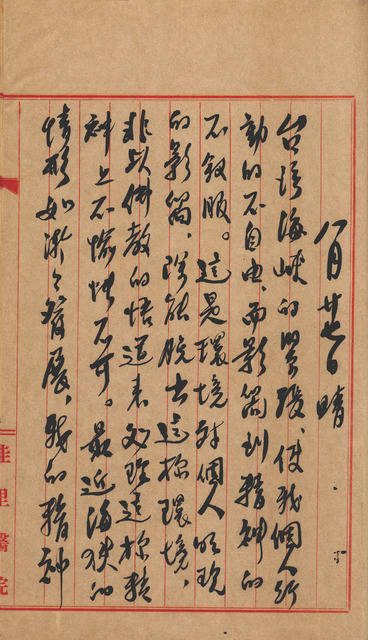 八月廿七日 晴
台灣海峽的緊張,使我個人行
動的不自由,而影響到精神的
不舒服。這是環境對個人的現
的影響,除能脫出這種環境,
非以佛教的悟道來處理這種精
神上不愉快不可。最近海峽的
情形如漸々發展,我的精神
佳里醫院